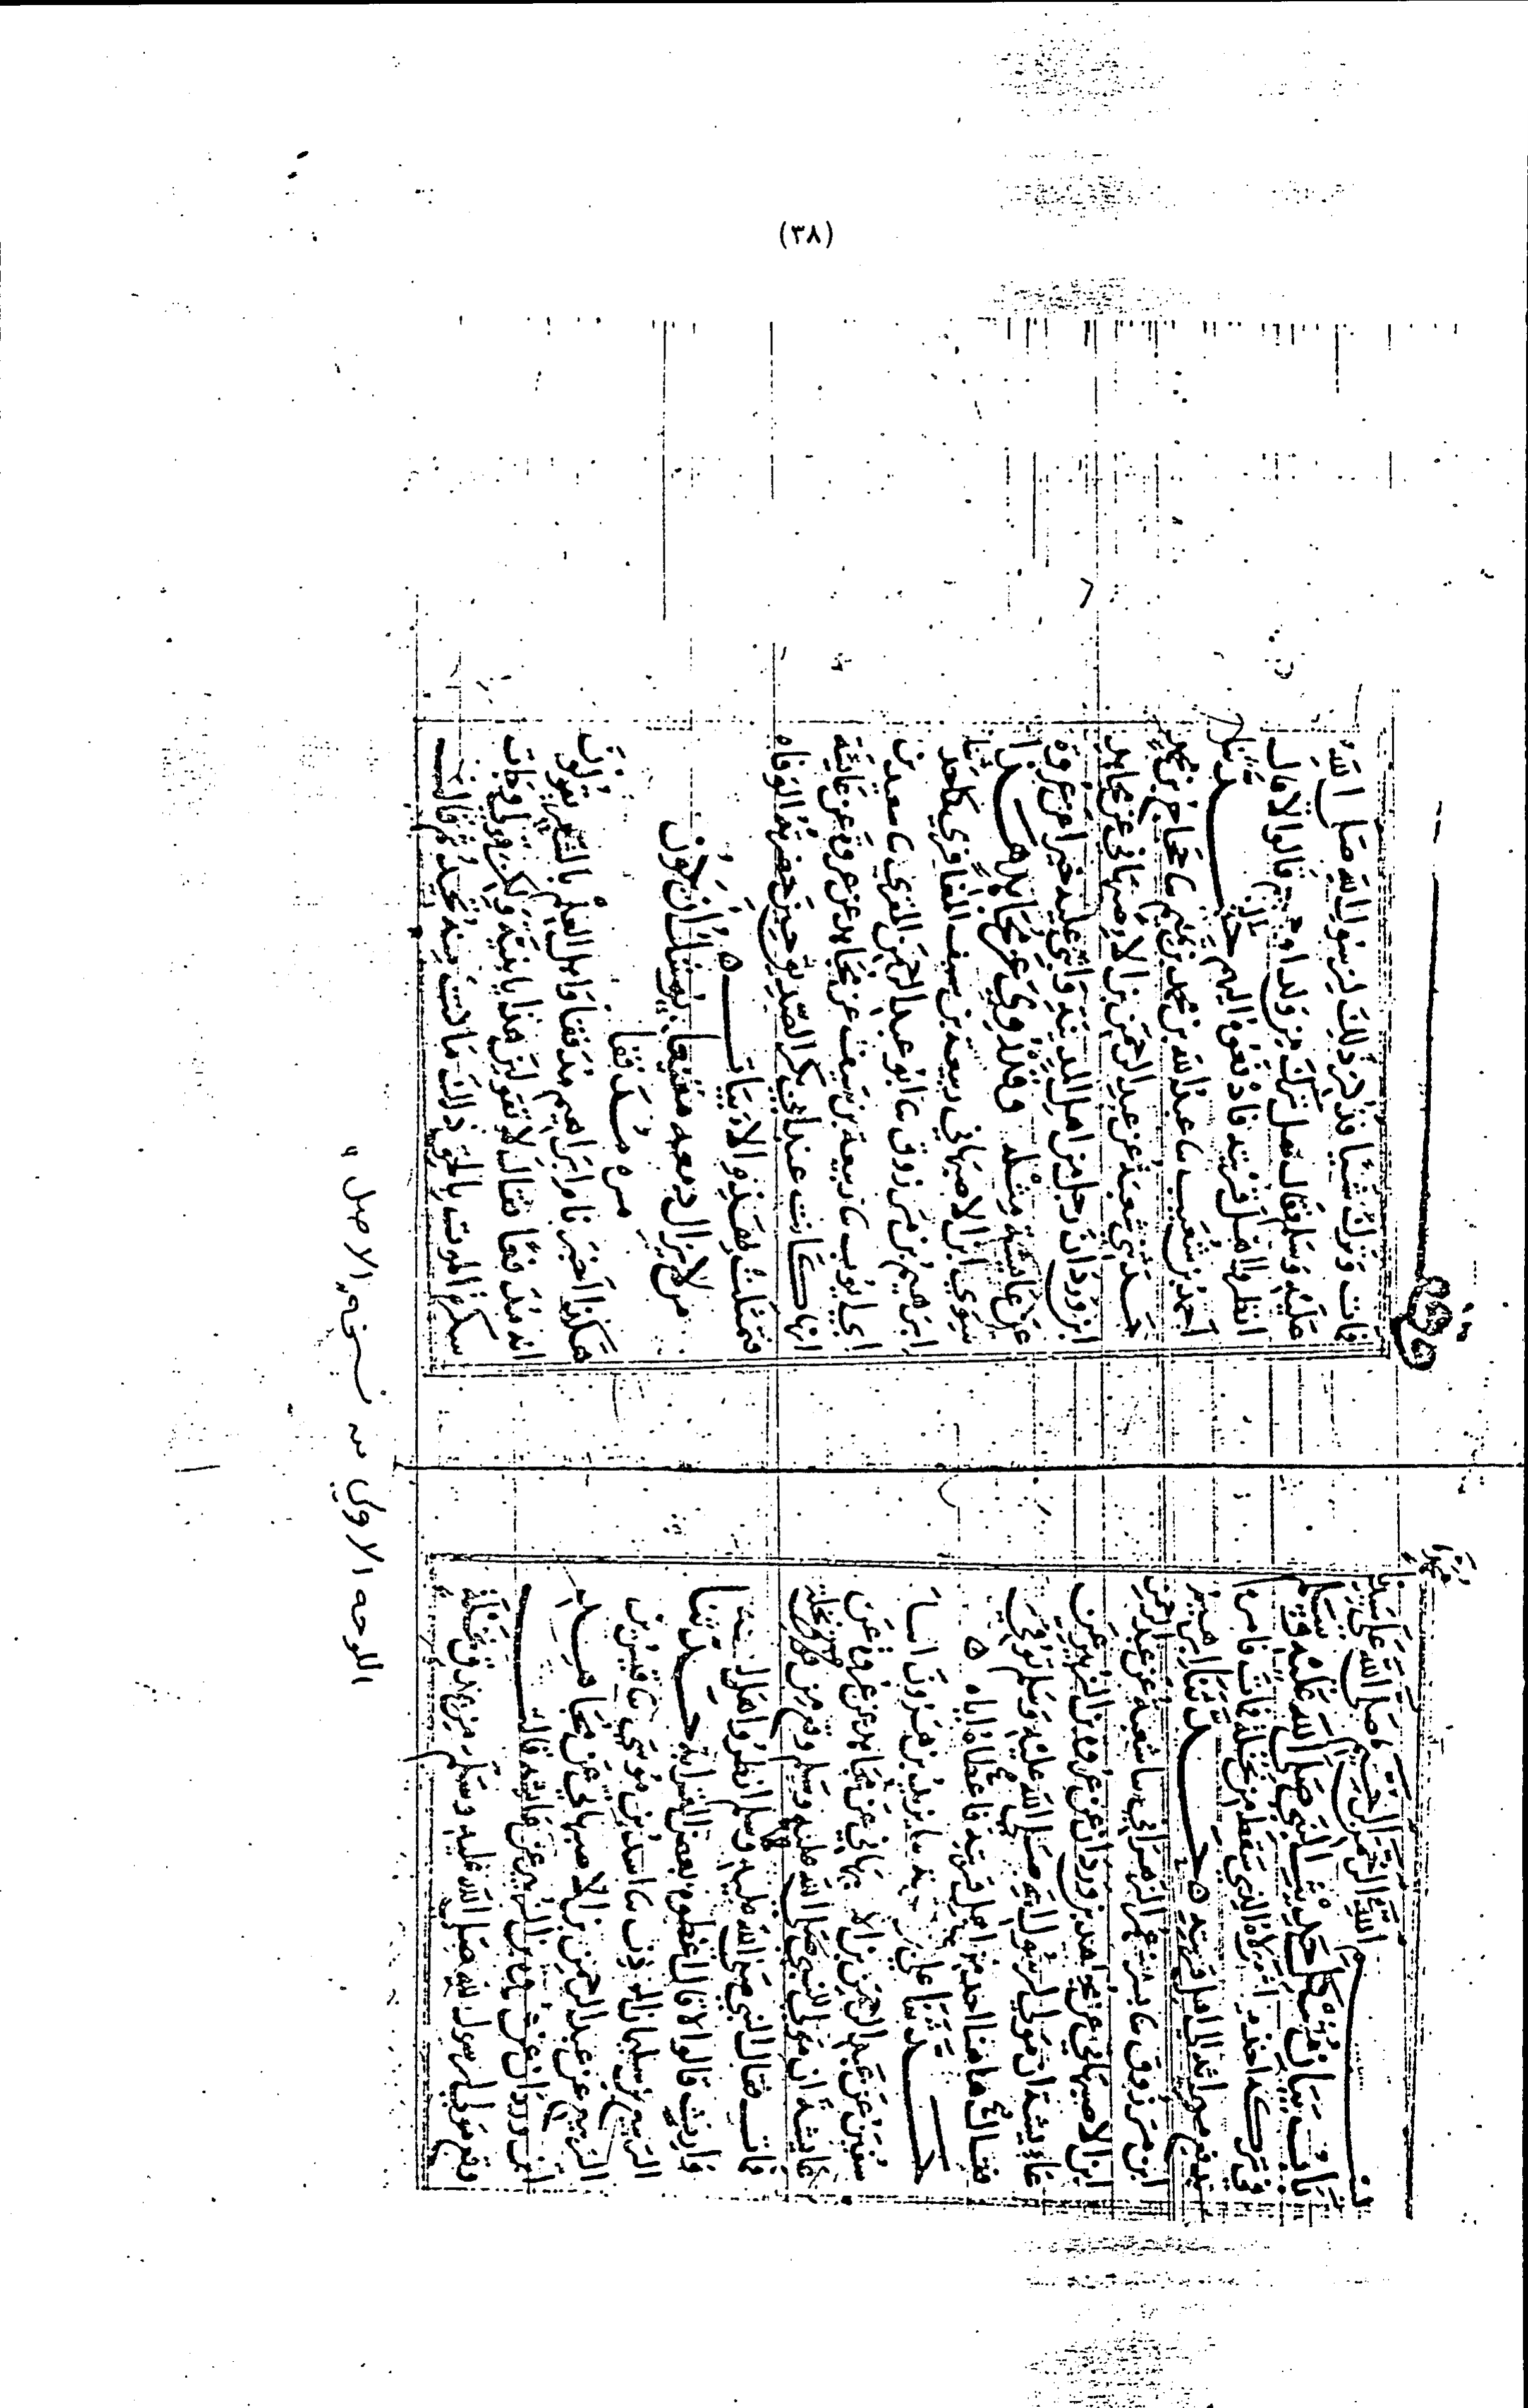 (٣٨)
بسم الله الرحمن الرحيم وصلى الله على سيدنا
باب بيان مشكل حديث النبي صلى الله عليه وسلم
في تركه اخذ ميراث مولاه الذي سقط من نخلة فمات فامر ان
يدفع ميراثه الى اهل قريته ه حدثنا ابراهيم
ابن مرزوق نا بشر بن عمر الزهراني نا شعبة عن عبد الرحمن
ابن الاصبهاني عن مجاهد بن وردان عن عروة بن الزبير عن
عائشة ان مولى لرسول الله صلى الله عليه وسلم توفي
فقال هاهنا احد من اهل قريته فاعطاه اياه ه
حدثنا علي بن نا يزيد بن هرون انا
سفين عن عبد الرحمن بن الاصبهاني عن مجاهد عن عروة عن
عائشة ان مولى للنبي صلى الله عليه وسلم وقع من نخلة
فمات فقال النبي صلى الله عليه وسلم انظروا هل له من
وارث قالوا لا قال اعطوه بعض القرابة حدثنا
الربيع بن سليمان المؤذن نا اسد بن موسى نا قيس بن
الربيع عن عبد الرحمن بن الاصبهاني عن مجاهد
ابن وردان عن عروة بن الزبير عن عائشة قالت
وقع مولى لرسول الله صلى الله عليه وسلم من عذق نخلة
فمات وترك شيا فذكر ذلك لرسول الله صلى الله
عليه وسلم فقال هل ترك من ولد او حميم قالوا لا قال
انظروا اهل قريته فادفعوه اليهم حدثنا
احمد بن شعيب نا عبد الله بن محمد بن تميم نا حجاج بن محمد
حدثني شعبة عن عبد الرحمن بن الاصبهاني عن مجاهد
ابن وردان رجل من اهل المدينة واثنى عليه خيرا عن عروة
عن عائشة مثله وقد روي عن مجاهد هذا
سوى ابن الاصبهاني ربيعة بن سيف المعافري كما حدثنا
ابرهيم بن مرزوق نا ابو عبد الرحمن المقري نا سعيد بن
ابي ايوب نا ربيعة بن سيف عن مجاهد عن عروة عن عائشة
انها كانت عند ابي بكر الصديق حين حضرته الوفاه
فتمثلت بهذه الابيات ه
من لا يزال دمعه مقنعا يوشك ان يكون
مره مدفقا
هكذا اخبرنا ابراهيم مدفقا واهل العلم بالشعر يقولون
انه فقال لا تقولين هذا يا بنية ولكن قولي وجات
سكرة الموت بالحق ذلك ما كنت منه تحيد ثم قال
اللوحه الاولى من نسخة الاصل "